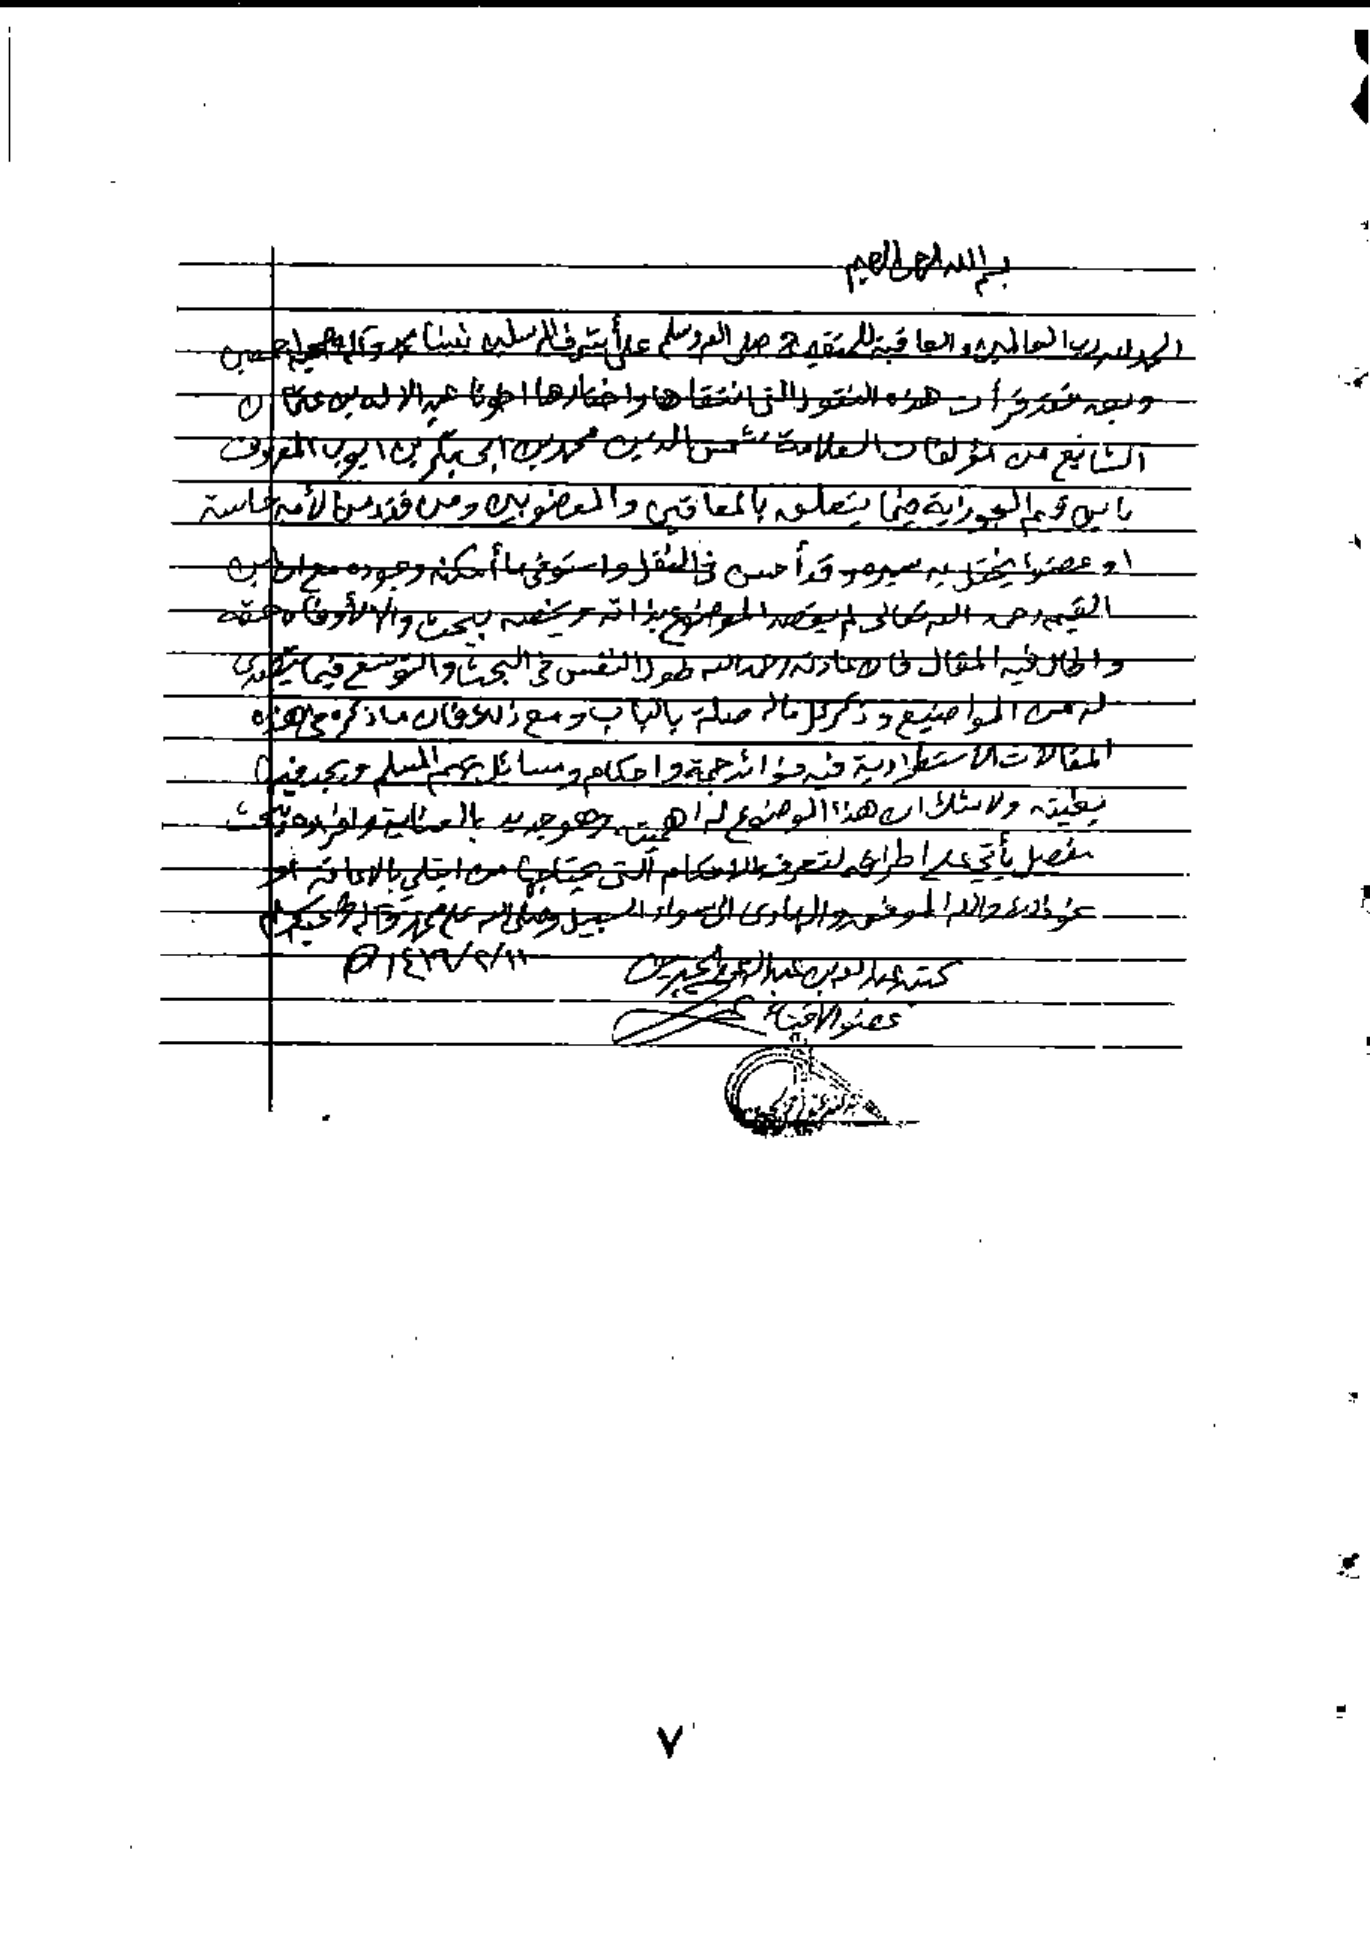 بسم الله الرحمن الرحيم
الحمد لله رب العالمين والعاقبة للمتقين صلى الله وسلم على أشرف المرسلين نبينا محمد وآله وصحبه اجمعين
وبعد فقد قرأت هذه النقول التي انتقاها واختارها اخونا عبد الاله بن عثمان
الشايع من مؤلفات العلامة شمس الدين محمد بن ابي بكر بن ايوب المعروف
بابن قيم الجوزية فيما يتعلق بالمعاقين والمعضوبين ومن فقد من الآدميين حاسة
او عضوا يختل به سيره وقد أحسن في النقل واستوفى ما أمكنه وجوده مع ان ابن
القيم رحمه الله تعالى لم يقصد الموضوع بذاته ويخصه ببحث والا لأوفاه حقه
واطال فيه المقال فان عادته رحمه الله طول النفس في البحث والتوسع فيما يتصدى
له من المواضيع وذكر كل ماله صلة بالباب ومع ذلك فان ما ذكره في هذه
المقالات الاستطرادية فيه فوائد جمة واحكام ومسائل تهم المسلم ويجد فيها
بغيته ولا شك ان هذا الموضوع له اهميته وهو جدير بالعناية وافراده ببحث
مفصل يأتي على اطرافه لتعرف الاحكام التي يحتاجها من ابتلي بالاعاقة او
نحو ذلك والله الموفق والهادي الى سواء السبيل وصلى الله على محمد وآله وصحبه وسلم
كتبه عبد الله بن عبد الرحمن الجبرين ١٤٢٦/٢/١١ هـ
عضو الافتاء
٧